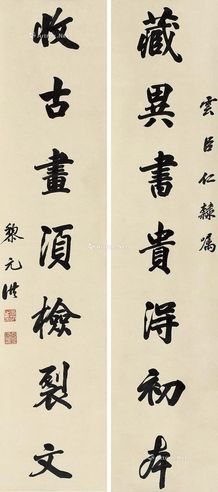 雲臣仁隸属
藏異書貴淂初本
收古畫須檢裂文
黎元洪